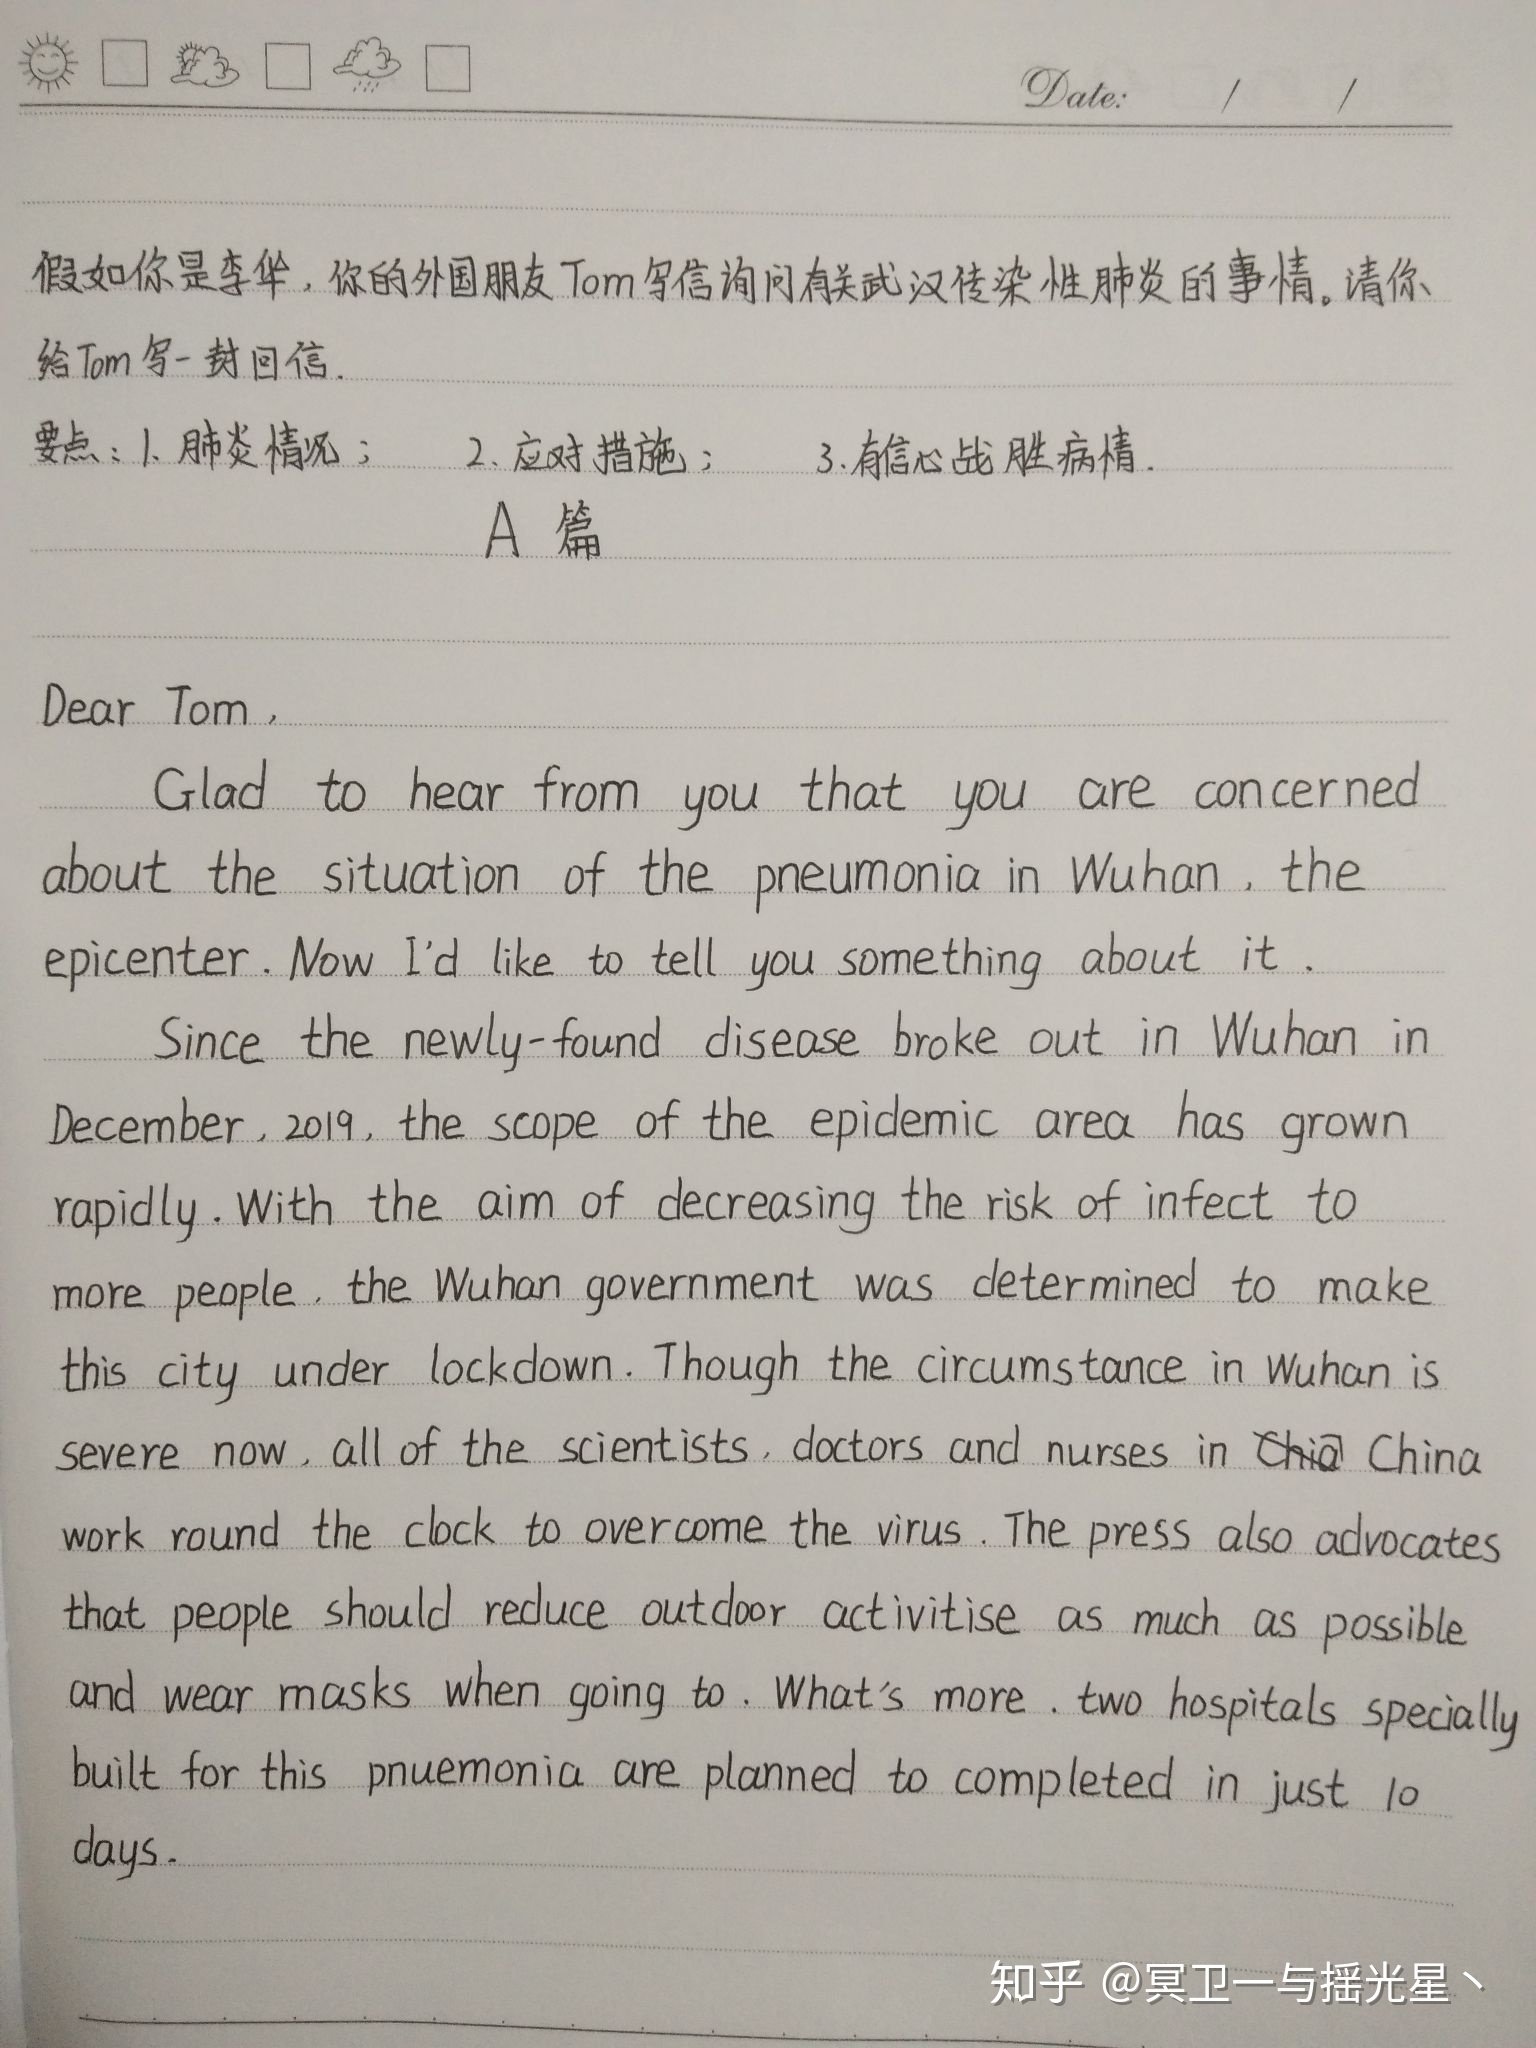 Date: / /
假如你是李华，你的外国朋友Tom写信询问有关武汉传染性肺炎的事情。请你
给Tom写一封回信.
要点：1. 肺炎情况； 2. 应对措施； 3.有信心战胜病情.
A 篇
Dear Tom,
Glad to hear from you that you are concerned
about the situation of the pneumonia in Wuhan, the
epicenter. Now I'd like to tell you something about it.
Since the newly-found disease broke out in Wuhan in
December, 2019, the scope of the epidemic area has grown
rapidly. With the aim of decreasing the risk of infect to
more people, the Wuhan government was determined to make
this city under lockdown. Though the circumstance in Wuhan is
severe now, all of the scientists, doctors and nurses in Chia China
work round the clock to overcome the virus. The press also advocates
that people should reduce outdoor activitise as much as possible
and wear masks when going to. What's more, two hospitals specially
built for this pnuemonia are planned to completed in just 10
days.
知乎 @冥卫一与摇光星丶